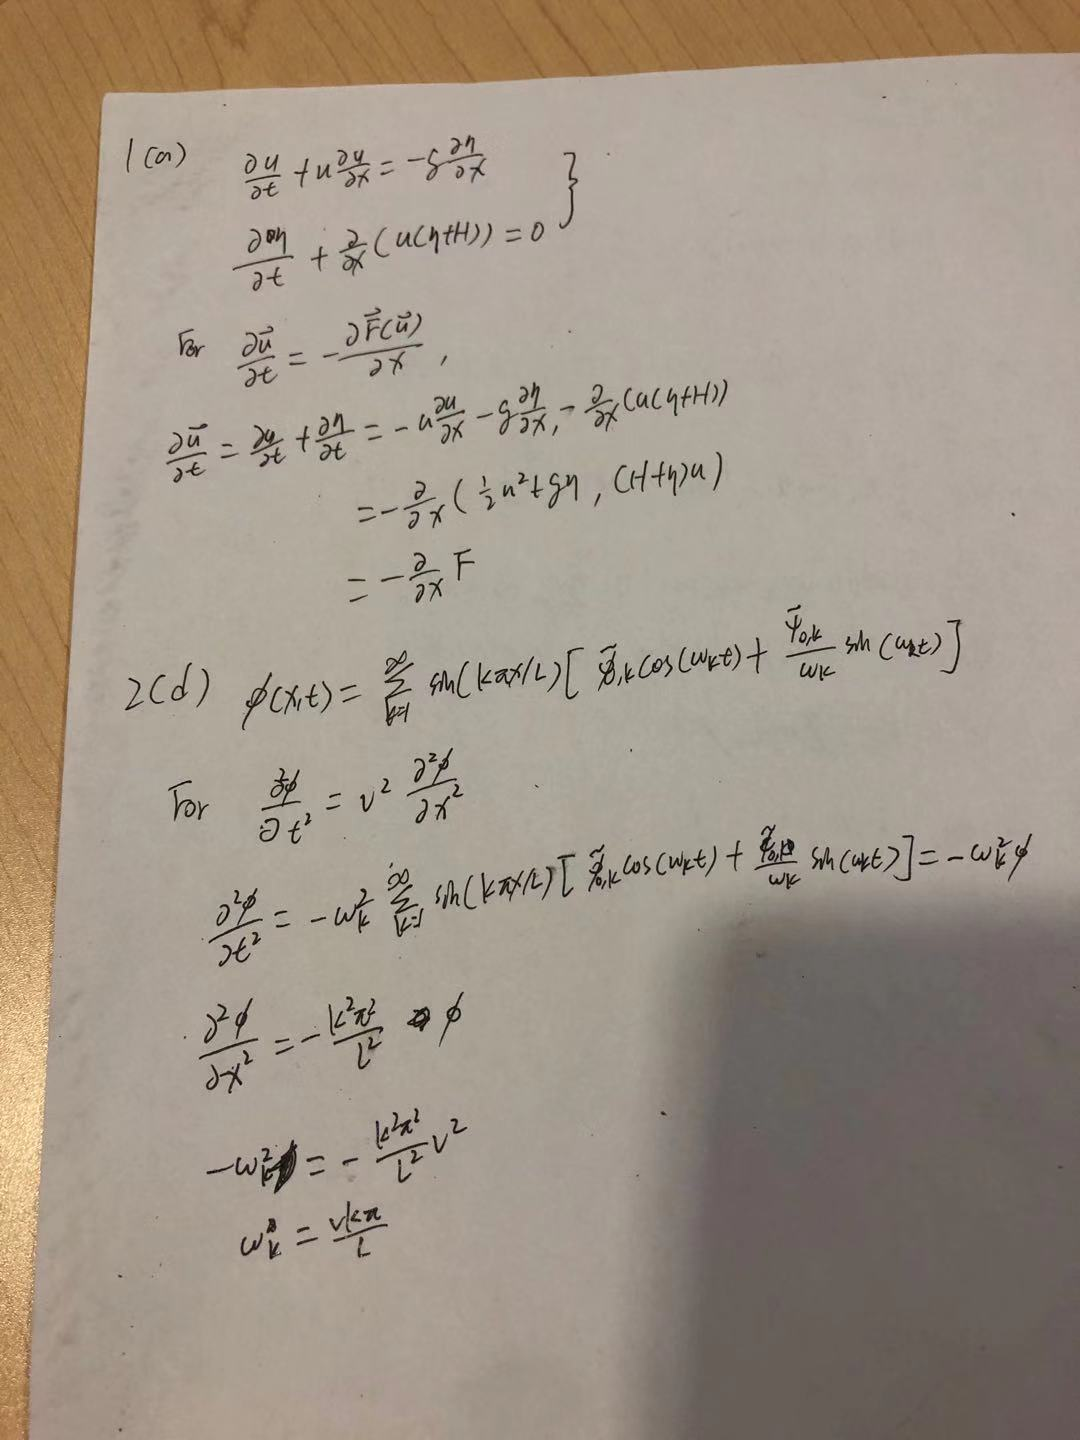 1(a) ∂u/∂t + u ∂u/∂x = -g ∂η/∂x
∂η/∂t + ∂/∂x (u(η+H)) = 0 }
For ∂u⃗/∂t = - ∂F⃗(u⃗)/∂x ,
∂u⃗/∂t = ∂u/∂t + ∂η/∂t = -u ∂u/∂x - g ∂η/∂x, - ∂/∂x (u(η+H))
= - ∂/∂x ( 1/2 u² + gη , (H+η)u )
= - ∂/∂x F
2(d) ϕ(x,t) = ∑_{k=1}^{∞} sin(kπx/L) [ ϕ̃_{0,k} cos(ω_k t) + ψ̃_{0,k}/ω_k sin(ω_k t) ]
For ∂²ϕ/∂t² = v² ∂²ϕ/∂x²
∂²ϕ/∂t² = -ω_k² ∑_{k=1}^{∞} sin(kπx/L) [ ϕ̃_{0,k} cos(ω_k t) + ψ̃_{0,k}/ω_k sin(ω_k t) ] = -ω_k² ϕ
∂²ϕ/∂x² = - k²π²/L² ϕ
-ω_k² = - k²π²/L² v²
ω_k = vkπ/L